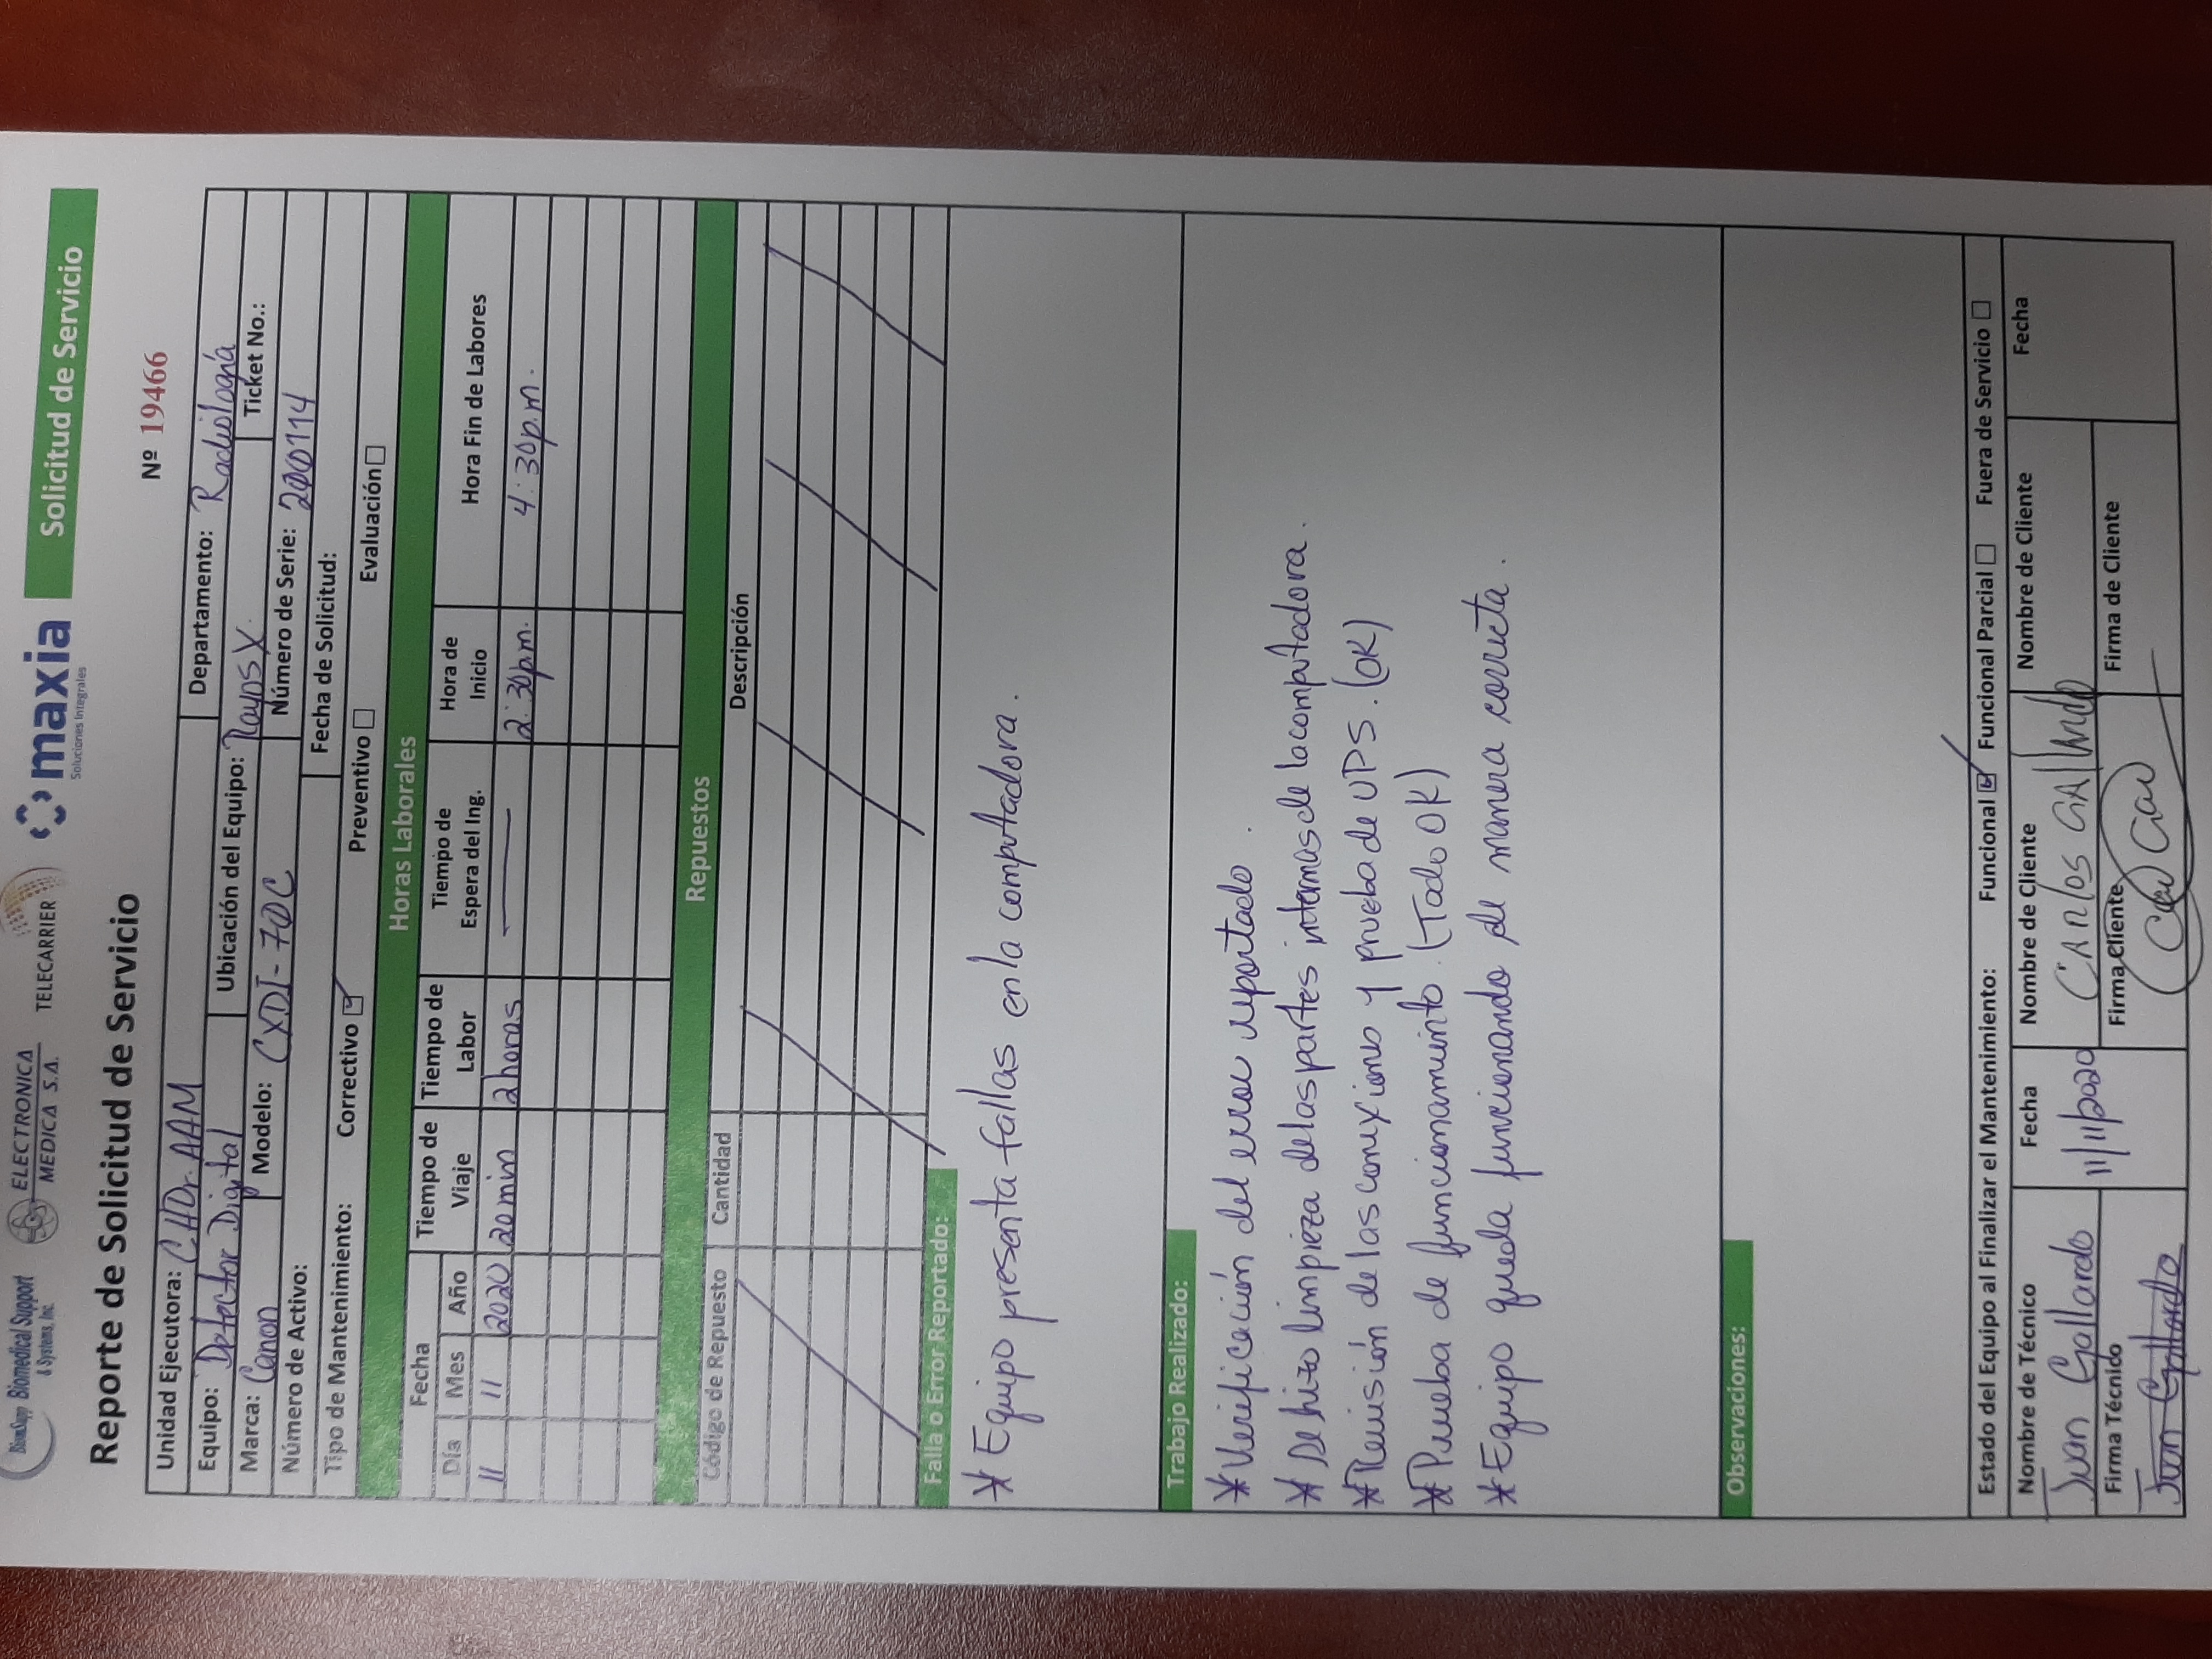 BiomSupp Biomedical Support & Systems, Inc.
ELECTRONICA MEDICA S.A.
TELECARRIER
maxia
Soluciones Integrales
Solicitud de Servicio
Reporte de Solicitud de Servicio
Nº 19466
Unidad Ejecutora: CHDr. AAM
Departamento: Radiología
Equipo: Detector Digital
Ubicación del Equipo: Rayos X.
Ticket No.:
Marca: Canon
Modelo: CXDI-70C
Número de Serie: 200114
Número de Activo:
Fecha de Solicitud:
Tipo de Mantenimiento: Correctivo Preventivo Evaluación
Horas Laborales
Fecha
Día Mes Año Tiempo de Viaje Tiempo de Labor Tiempo de Espera del Ing. Hora de Inicio Hora Fin de Labores
11 11 2020 20 min 2 horas — 2:30p.m. 4:30p.m.
Repuestos
Código de Repuesto Cantidad Descripción
Falla o Error Reportado:
* Equipo presenta fallas en la computadora.
Trabajo Realizado:
* Verificación del error reportado.
* Se hizo limpieza de las partes internas de la computadora.
* Revisión de las conexiones y prueba de UPS. (OK)
* Prueba de funcionamiento. (Todo OK)
* Equipo queda funcionando de manera correcta.
Observaciones:
Estado del Equipo al Finalizar el Mantenimiento: Funcional Funcional Parcial Fuera de Servicio
Nombre de Técnico Fecha Nombre de Cliente Nombre de Cliente Fecha
Juan Gallardo 11/11/2020 Carlos Gallardo
Firma Técnico Firma Cliente Firma de Cliente
Juan Gallardo